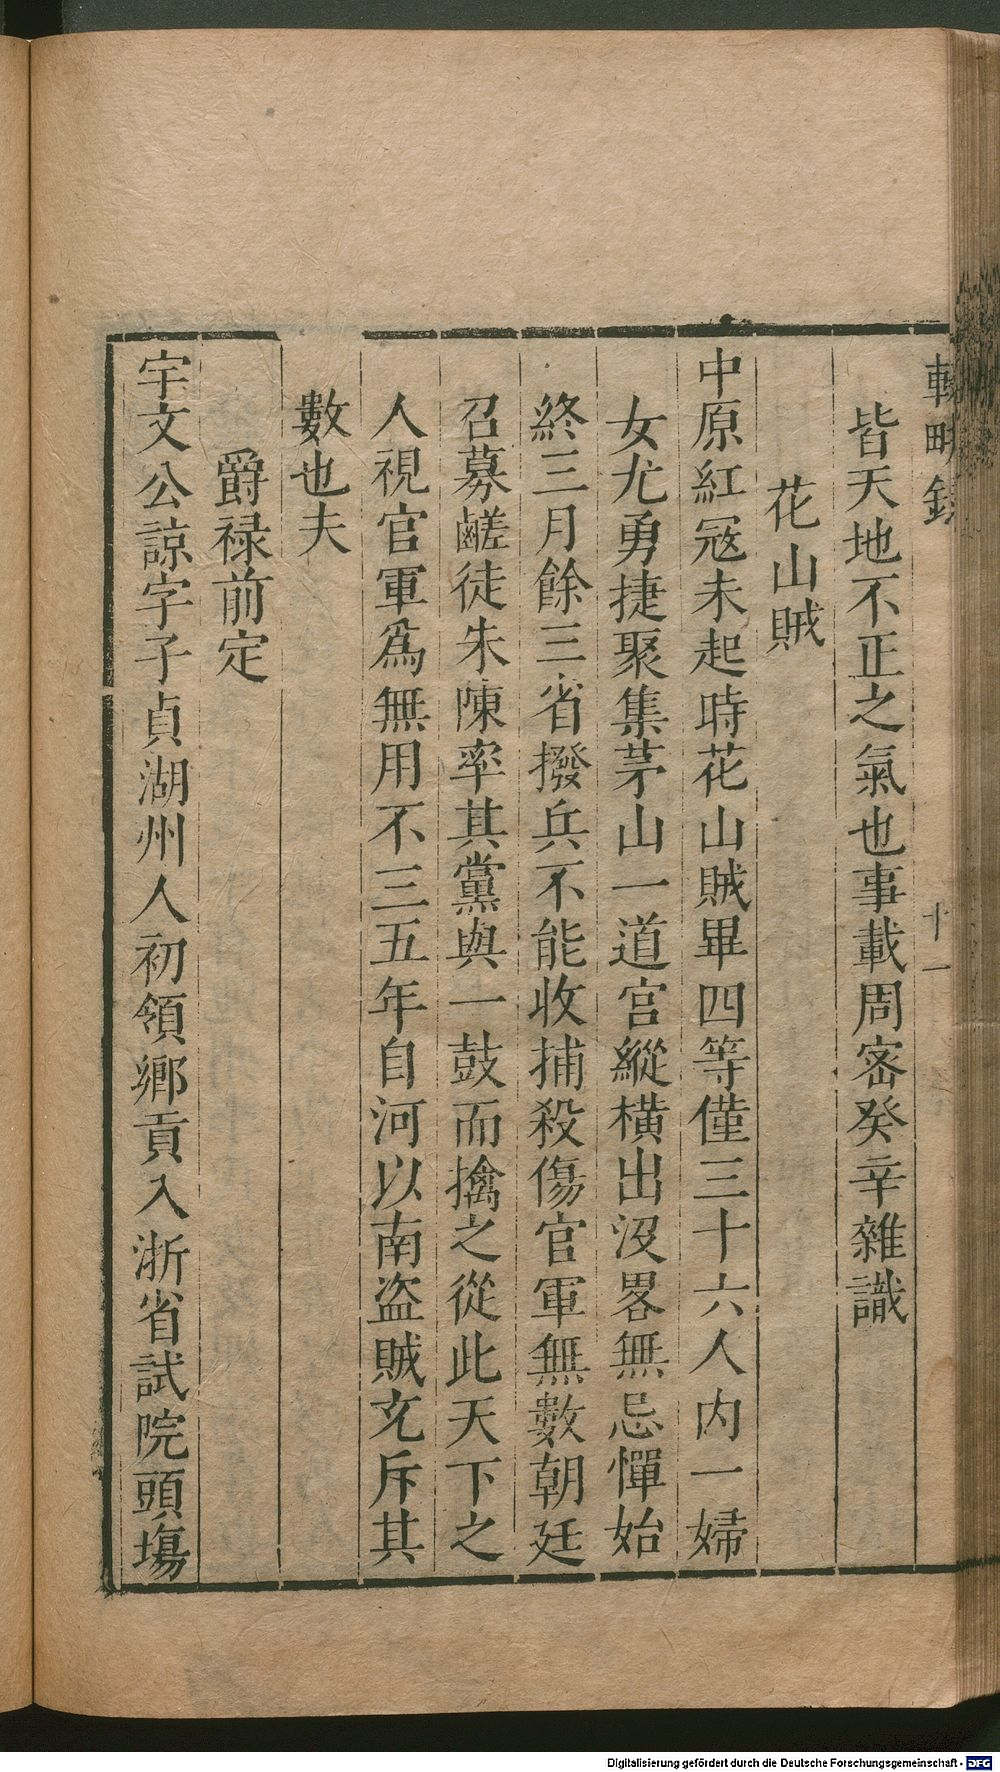 輟畊錄
十一
皆天地不正之氣也事載周密癸辛雜識
花山賊
中原紅寇未起時花山賊畢四等僅三十六人內一婦
女尤勇捷聚集茅山一道宫縱橫出沒畧無忌憚始
終三月餘三省撥兵不能收捕殺傷官軍無數朝廷
召募鹺徒朱陳率其黨與一鼓而擒之從此天下之
人視官軍爲無用不三五年自河以南盗賊充斥其
數也夫
爵禄前定
宇文公諒字子貞湖州人初領鄉貢入浙省試院頭塲
Digitalisierung gefördert durch die Deutsche Forschungsgemeinschaft - DFG